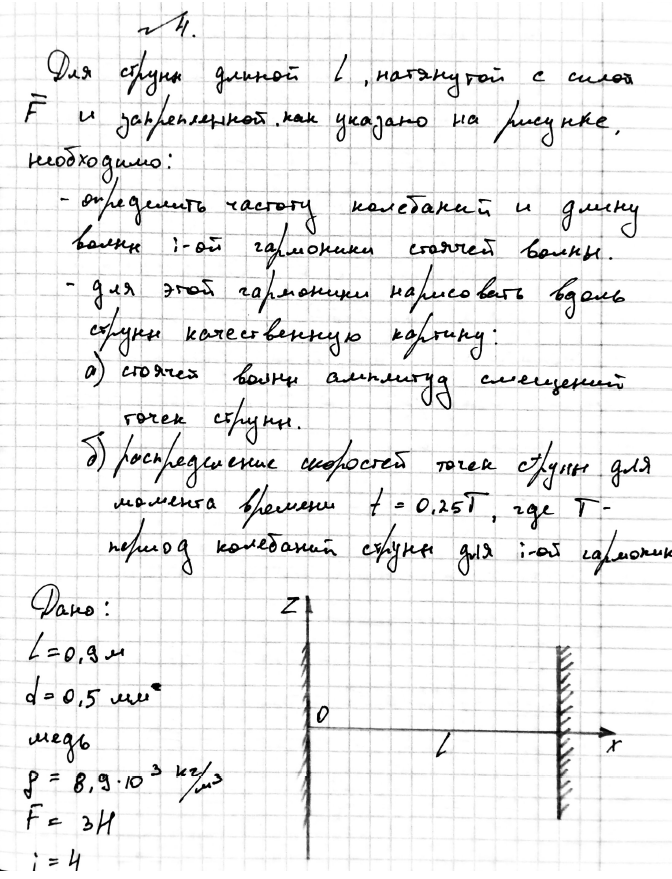 √ 4.
Для струны длиной l, натянутой с силой
F̄ и закрепленной, как указано на рисунке,
необходимо:
- определить частоту колебаний и длину
волны i-ой гармоники стоячей волны.
- для этой гармоники нарисовать вдоль
струны качественную картину:
а) стоячей волны амплитуд смещений
точек струны.
б) распределение скоростей точек струны для
момента времени t = 0,25T, где T -
период колебаний струны для i-ой гармоник
Дано:
l = 0,9 м
d = 0,5 мм
медь
ρ = 8,9·10³ кг/м³
F = 3Н
i = 4
Z
O
l
x